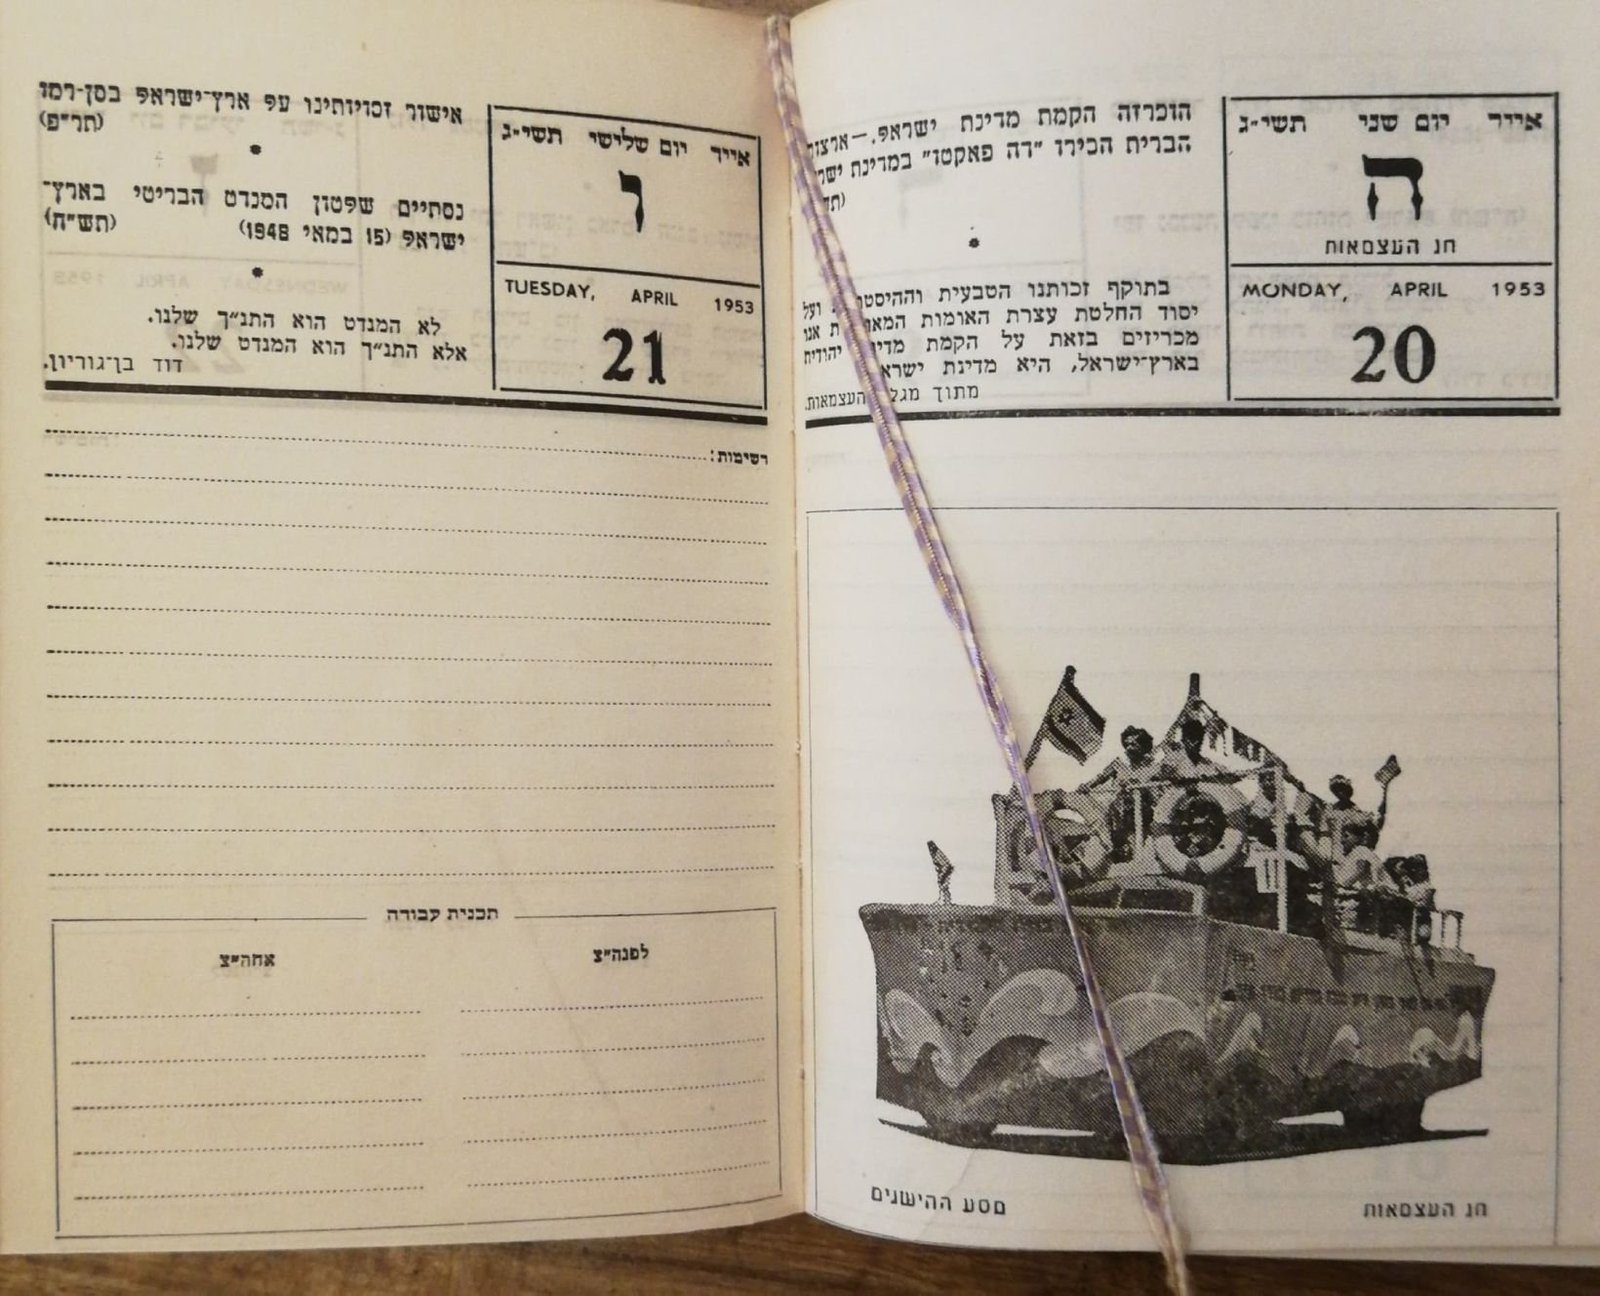 אייר יום שני תשי״ג
ה
חג העצמאות
MONDAY, APRIL 1953
20
הוכרזה הקמת מדינת ישראל. — ארצות
הברית הכירו ״דה פאקטו״ במדינת
*
בתוקף זכותנו הטבעית ועל
יסוד החלטת עצרת האומות אנו
מכריזים בזאת על הקמת יהודית
בארץ־ישראל, היא מדינת
מתוך העצמאות.
חג העצמאות
מסע ההישגים
אייר יום שלישי תשי״ג
ו
TUESDAY, APRIL 1953
21
אישור זכויותינו על ארץ־ישראל בסן־רמו
(תר״פ)
*
נסתיים שלטון המנדט הבריטי בארץ־
ישראל (15 במאי 1948) (תש״ח)
*
לא המנדט הוא התנ״ך שלנו.
אלא התנ״ך הוא המנדט שלנו.
דוד בן־גוריון.
רשימות:
תכנית עבודה
לפנה״צ אחה״צ